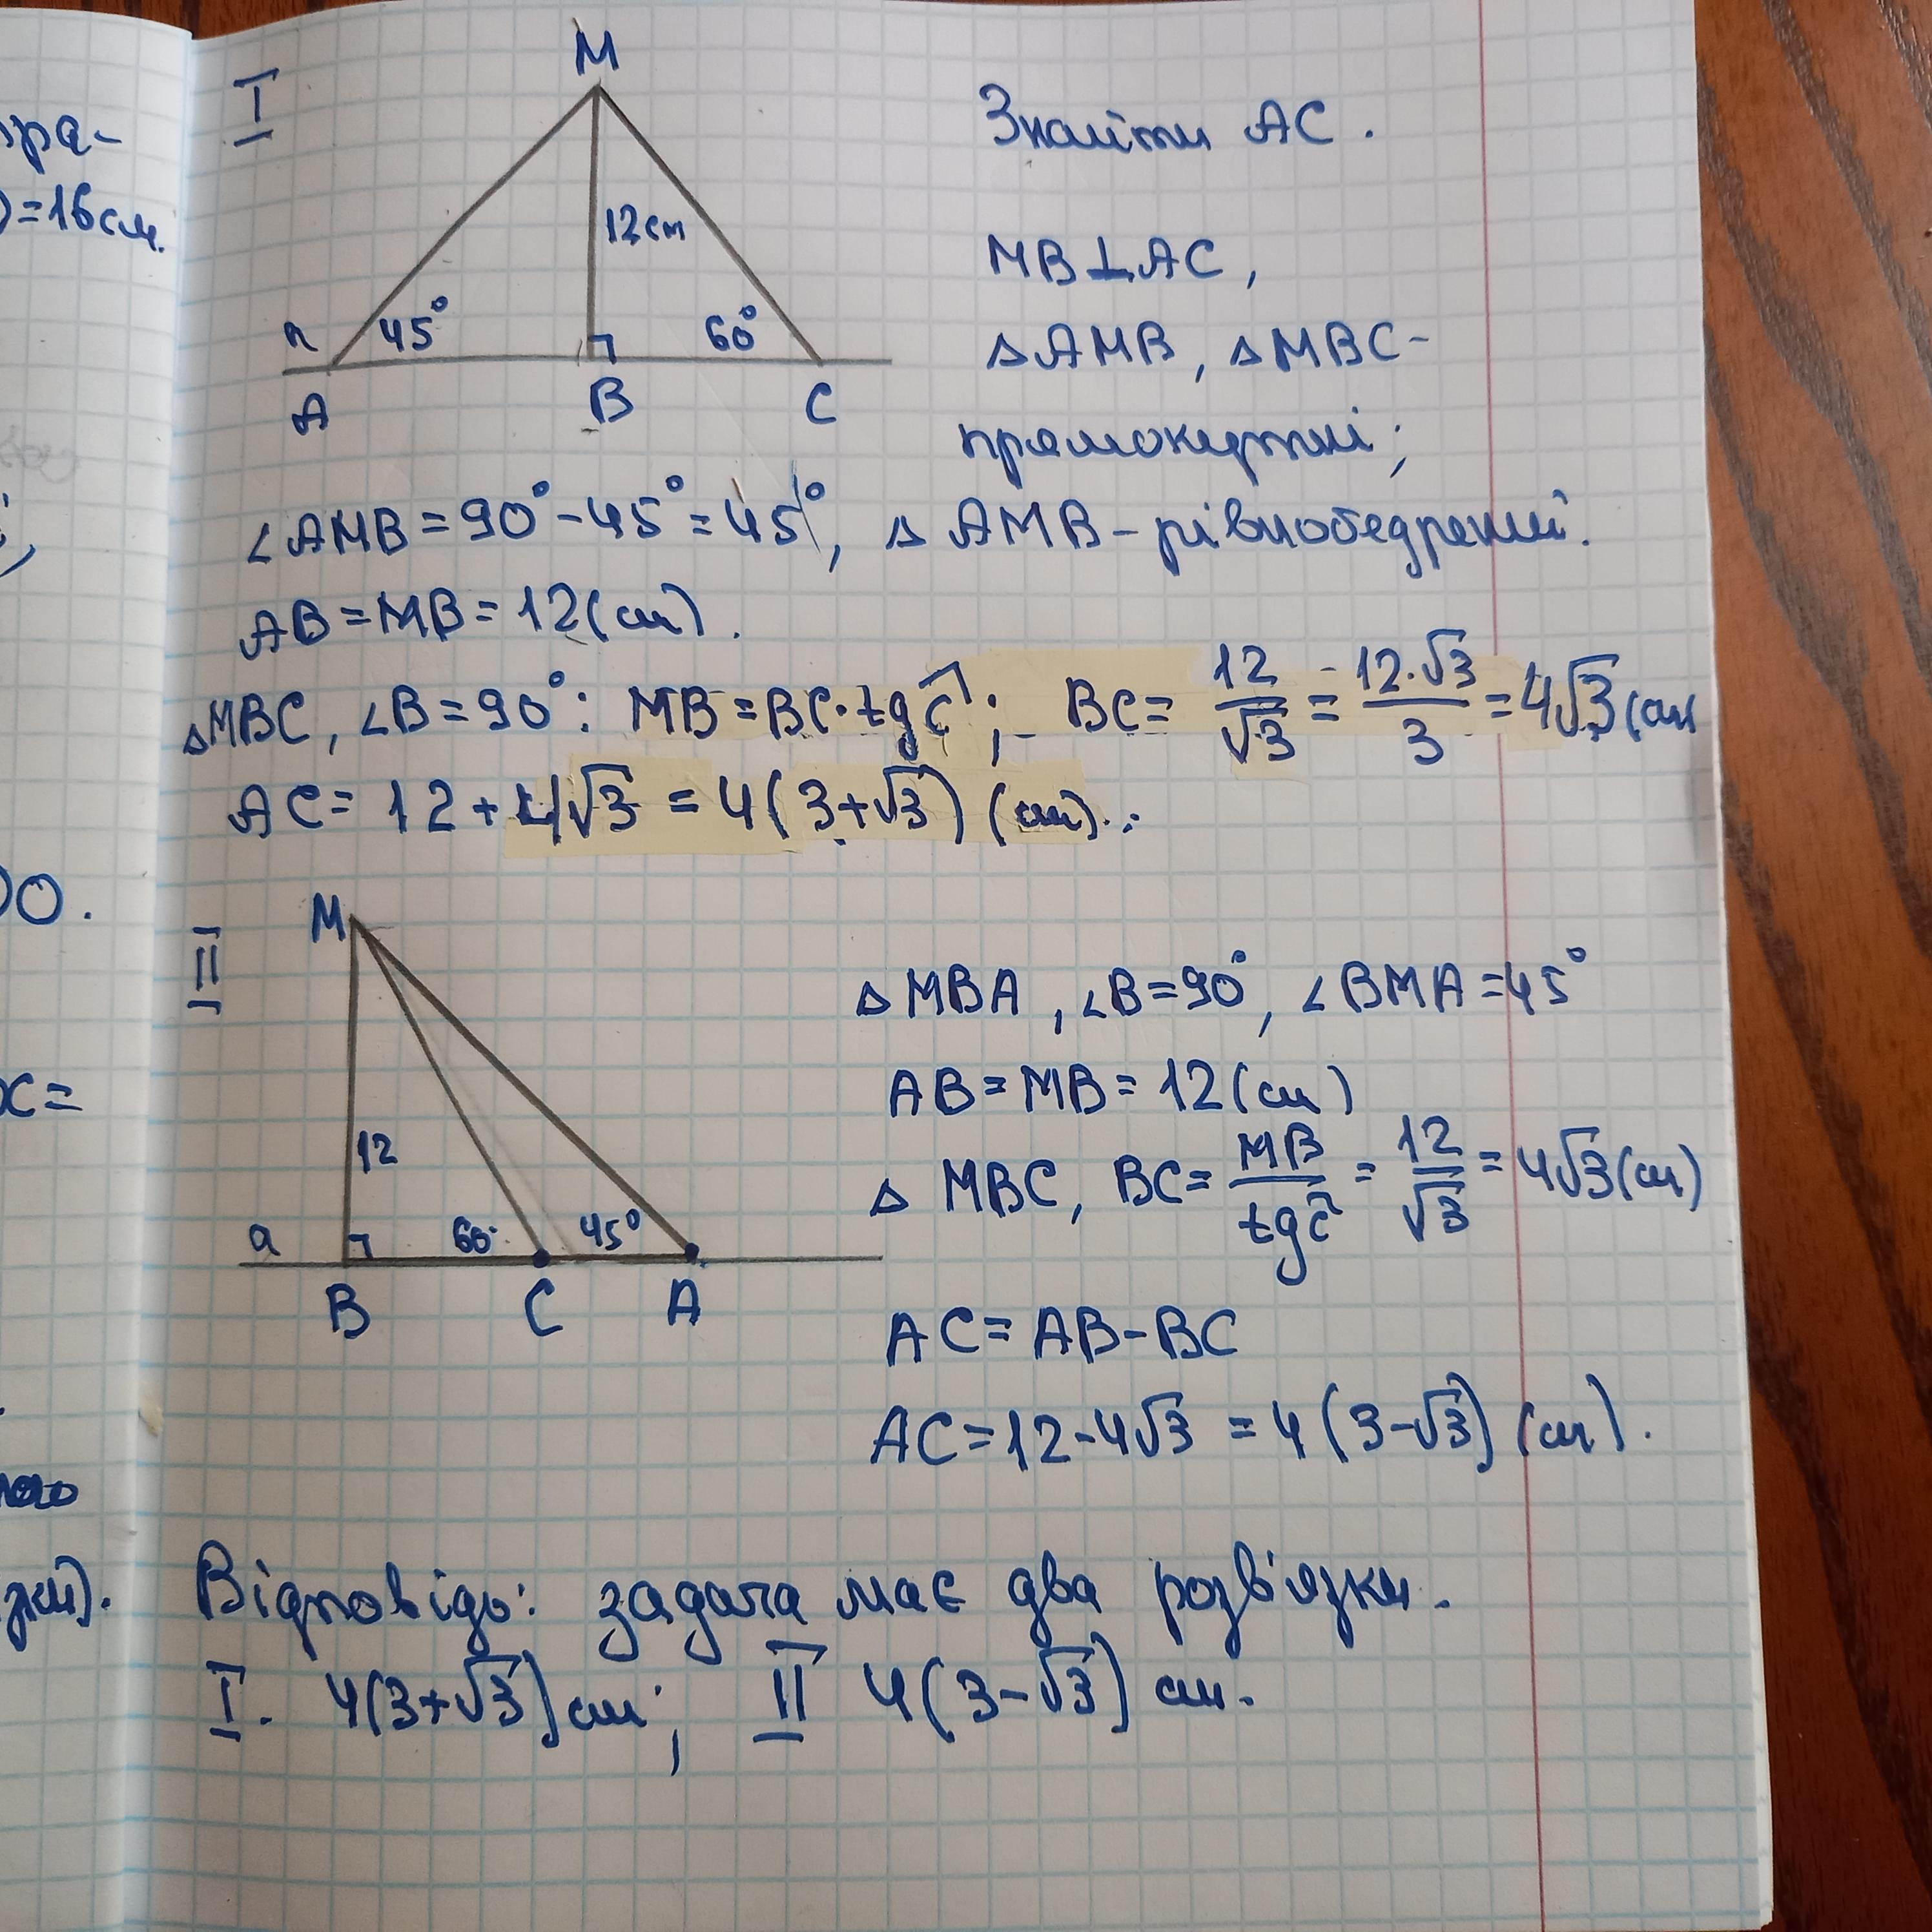 ра-
)=16см.
I
M
Знайти AC.
12см
MB⊥AC,
a 45° 60°
△AMB, △MBC-
A B C
прямокутні;
∠AMB=90°-45°=45°, △AMB-рівнобедрений.
AB=MB=12(см).
△MBC, ∠B=90°: MB=BC·tgC; BC=12/√3=12·√3/3=4√3(см
AC=12+4√3=4(3+√3)(см).
0.
M
II
△MBA, ∠B=90°, ∠BMA=45°
AB=MB=12(см)
x=
12
△MBC, BC=MB/tgC=12/√3=4√3(см)
a 60° 45°
B C A
AC=AB-BC
AC=12-4√3=4(3-√3)(см).
Відповідь: задача має два розв'язки.
I. 4(3+√3)см; II 4(3-√3)см.